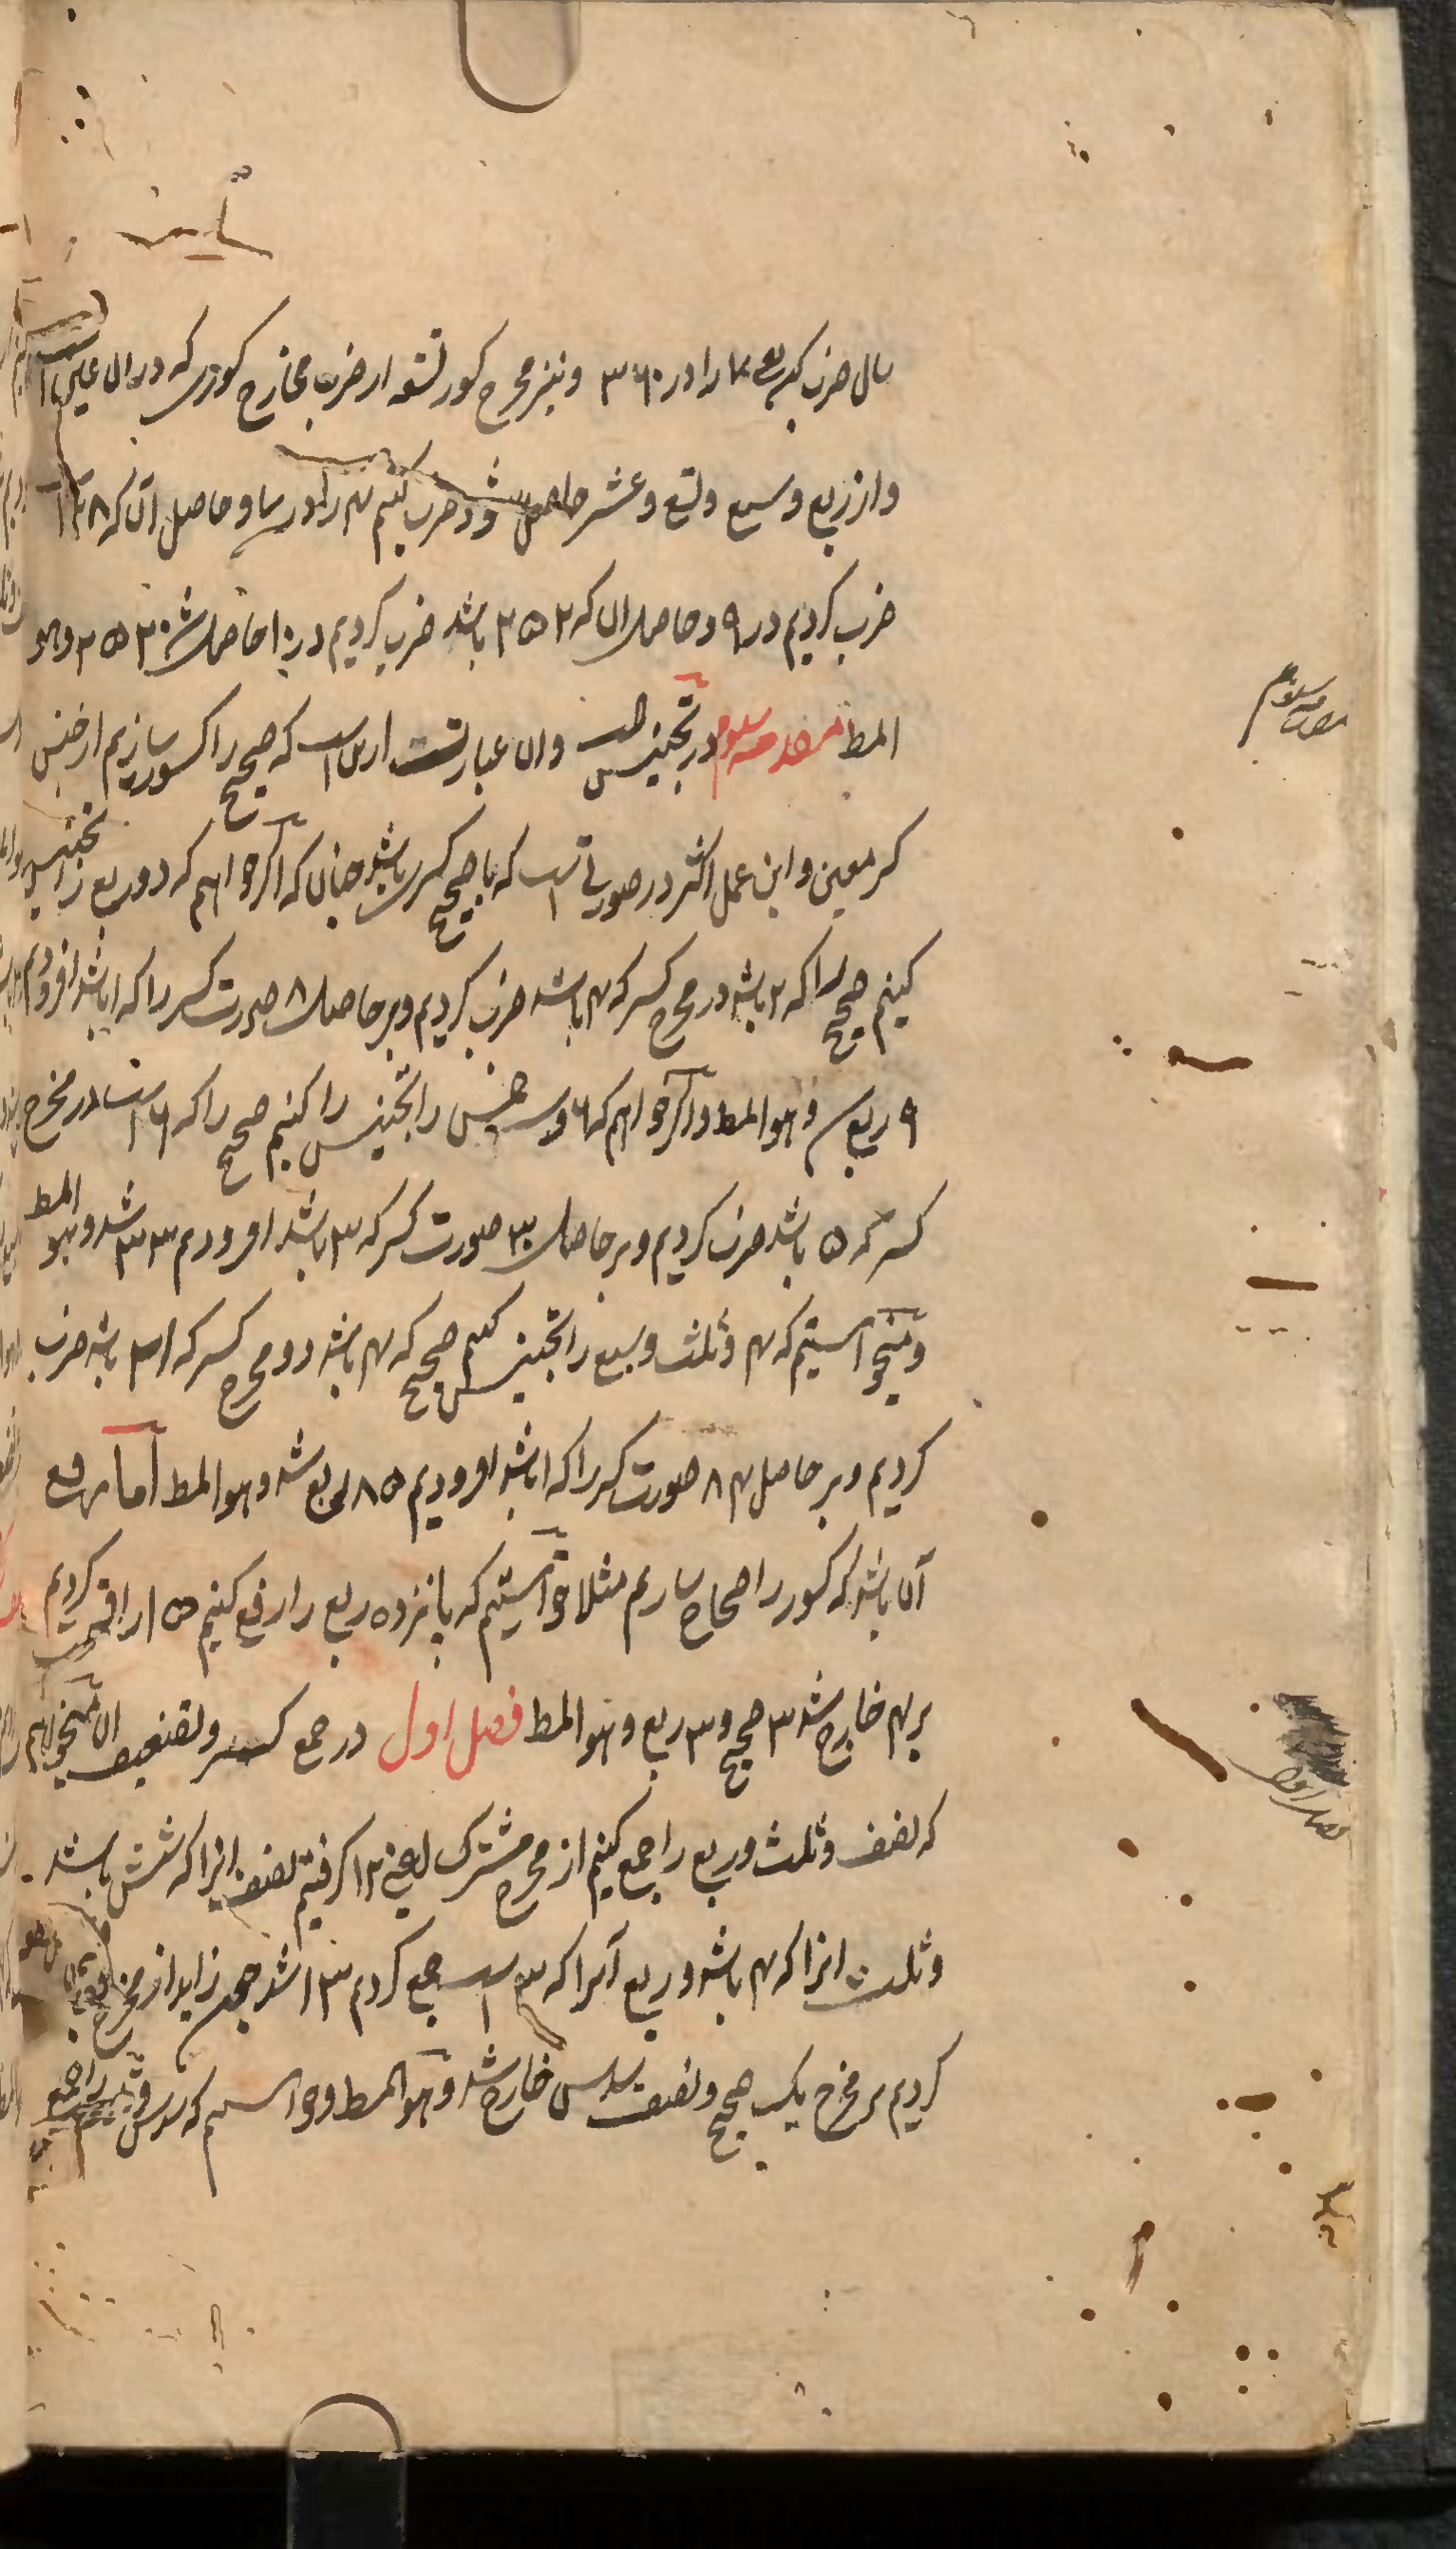 سال ضرب کن ۷ را در ۳۶۰ و نیز مخرج کسور تسعه از ضرب مخارج کسوری که در ان عین است
و از ربع و سبع و تسع و عشر حاصل شود ضرب کنیم ۴ را در ۷ و حاصل آن که ۲۸ است
ضرب کردیم در ۹ و حاصل ان که ۲۵۲ باشد ضرب کردیم در ۱۰ حاصل شد ۲۵۲۰ و هو
المط مقدمه سوم در تجنیس و ان عبارتست از ان است که صحیح را کسور سازیم از جنس
کسر معین و این عمل اکثر در صورتی است که با صحیح کسری باشد چنان که اگر خواهیم که دو و ربع را تجنیس
کنیم صحیح را که ۲ باشد در مخرج کسر که ۴ باشد ضرب کردیم و بر حاصل ۸ صورت کسر را که ۱ باشد افزودیم
۹ ربع شد و هو المط و اگر خواهیم که ۶ و سه خمس را تجنیس را کنیم صحیح را که ۶ است در مخرج
کسر که ۵ باشد ضرب کردیم و بر حاصل ۳۰ صورت کسر که ۳ باشد افزودیم ۳۳ شد و هو المط
و میخواستیم که ۴ و ثلث و سبع را تجنیس کنیم صحیح که ۴ باشد در مخرج کسر که ۲۱ باشد ضرب
کردیم و بر حاصل ۸۴ صورت کسر را که ۱ باشد افزودیم ۸۵ ربع شد و هو المط اما رفع
آن باشد که کسور را صحاح سازیم مثلا خواستیم که پانزده ربع را رفع کنیم ۱۵ را قسمت کردیم
بر ۴ خارج شد ۳ صحیح و ۳ ربع و هو المط فصل اول در جمع کسر و تضعیف ان میخواهیم
که نصف و ثلث و ربع را جمع کنیم از مخرج مشترک یعنی ۱۲ گرفتیم نصف انرا که شش باشد
و ثلث انرا که ۴ باشد و ربع آنرا که ۳ است جمع کردیم ۱۳ شد چون زاید از مخرج
کردیم بر مخرج یک صحیح و نصف سدس خارج شد و هو المط و خواستیم که سدس و ثلث را جمع کنیم
مقدمه سوم
فصل اول